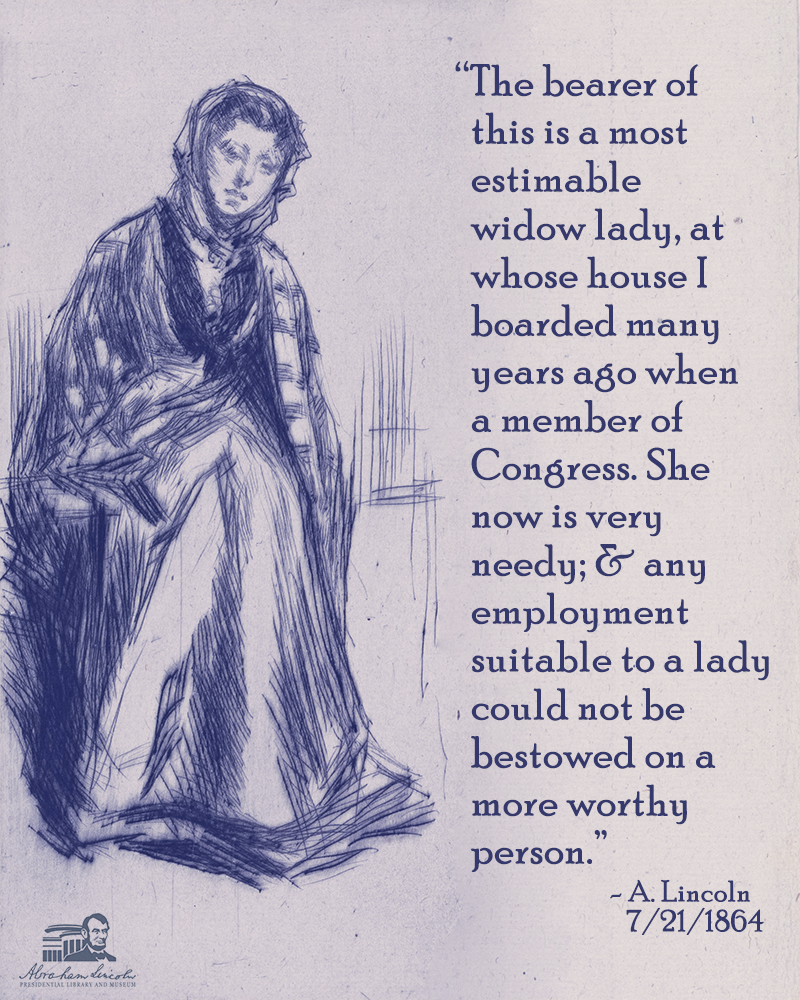 “The bearer of
this is a most
estimable
widow lady, at
whose house I
boarded many
years ago when
a member of
Congress. She
now is very
needy; & any
employment
suitable to a lady
could not be
bestowed on a
more worthy
person.”
~ A. Lincoln
7/21/1864
Abraham Lincoln
PRESIDENTIAL LIBRARY AND MUSEUM